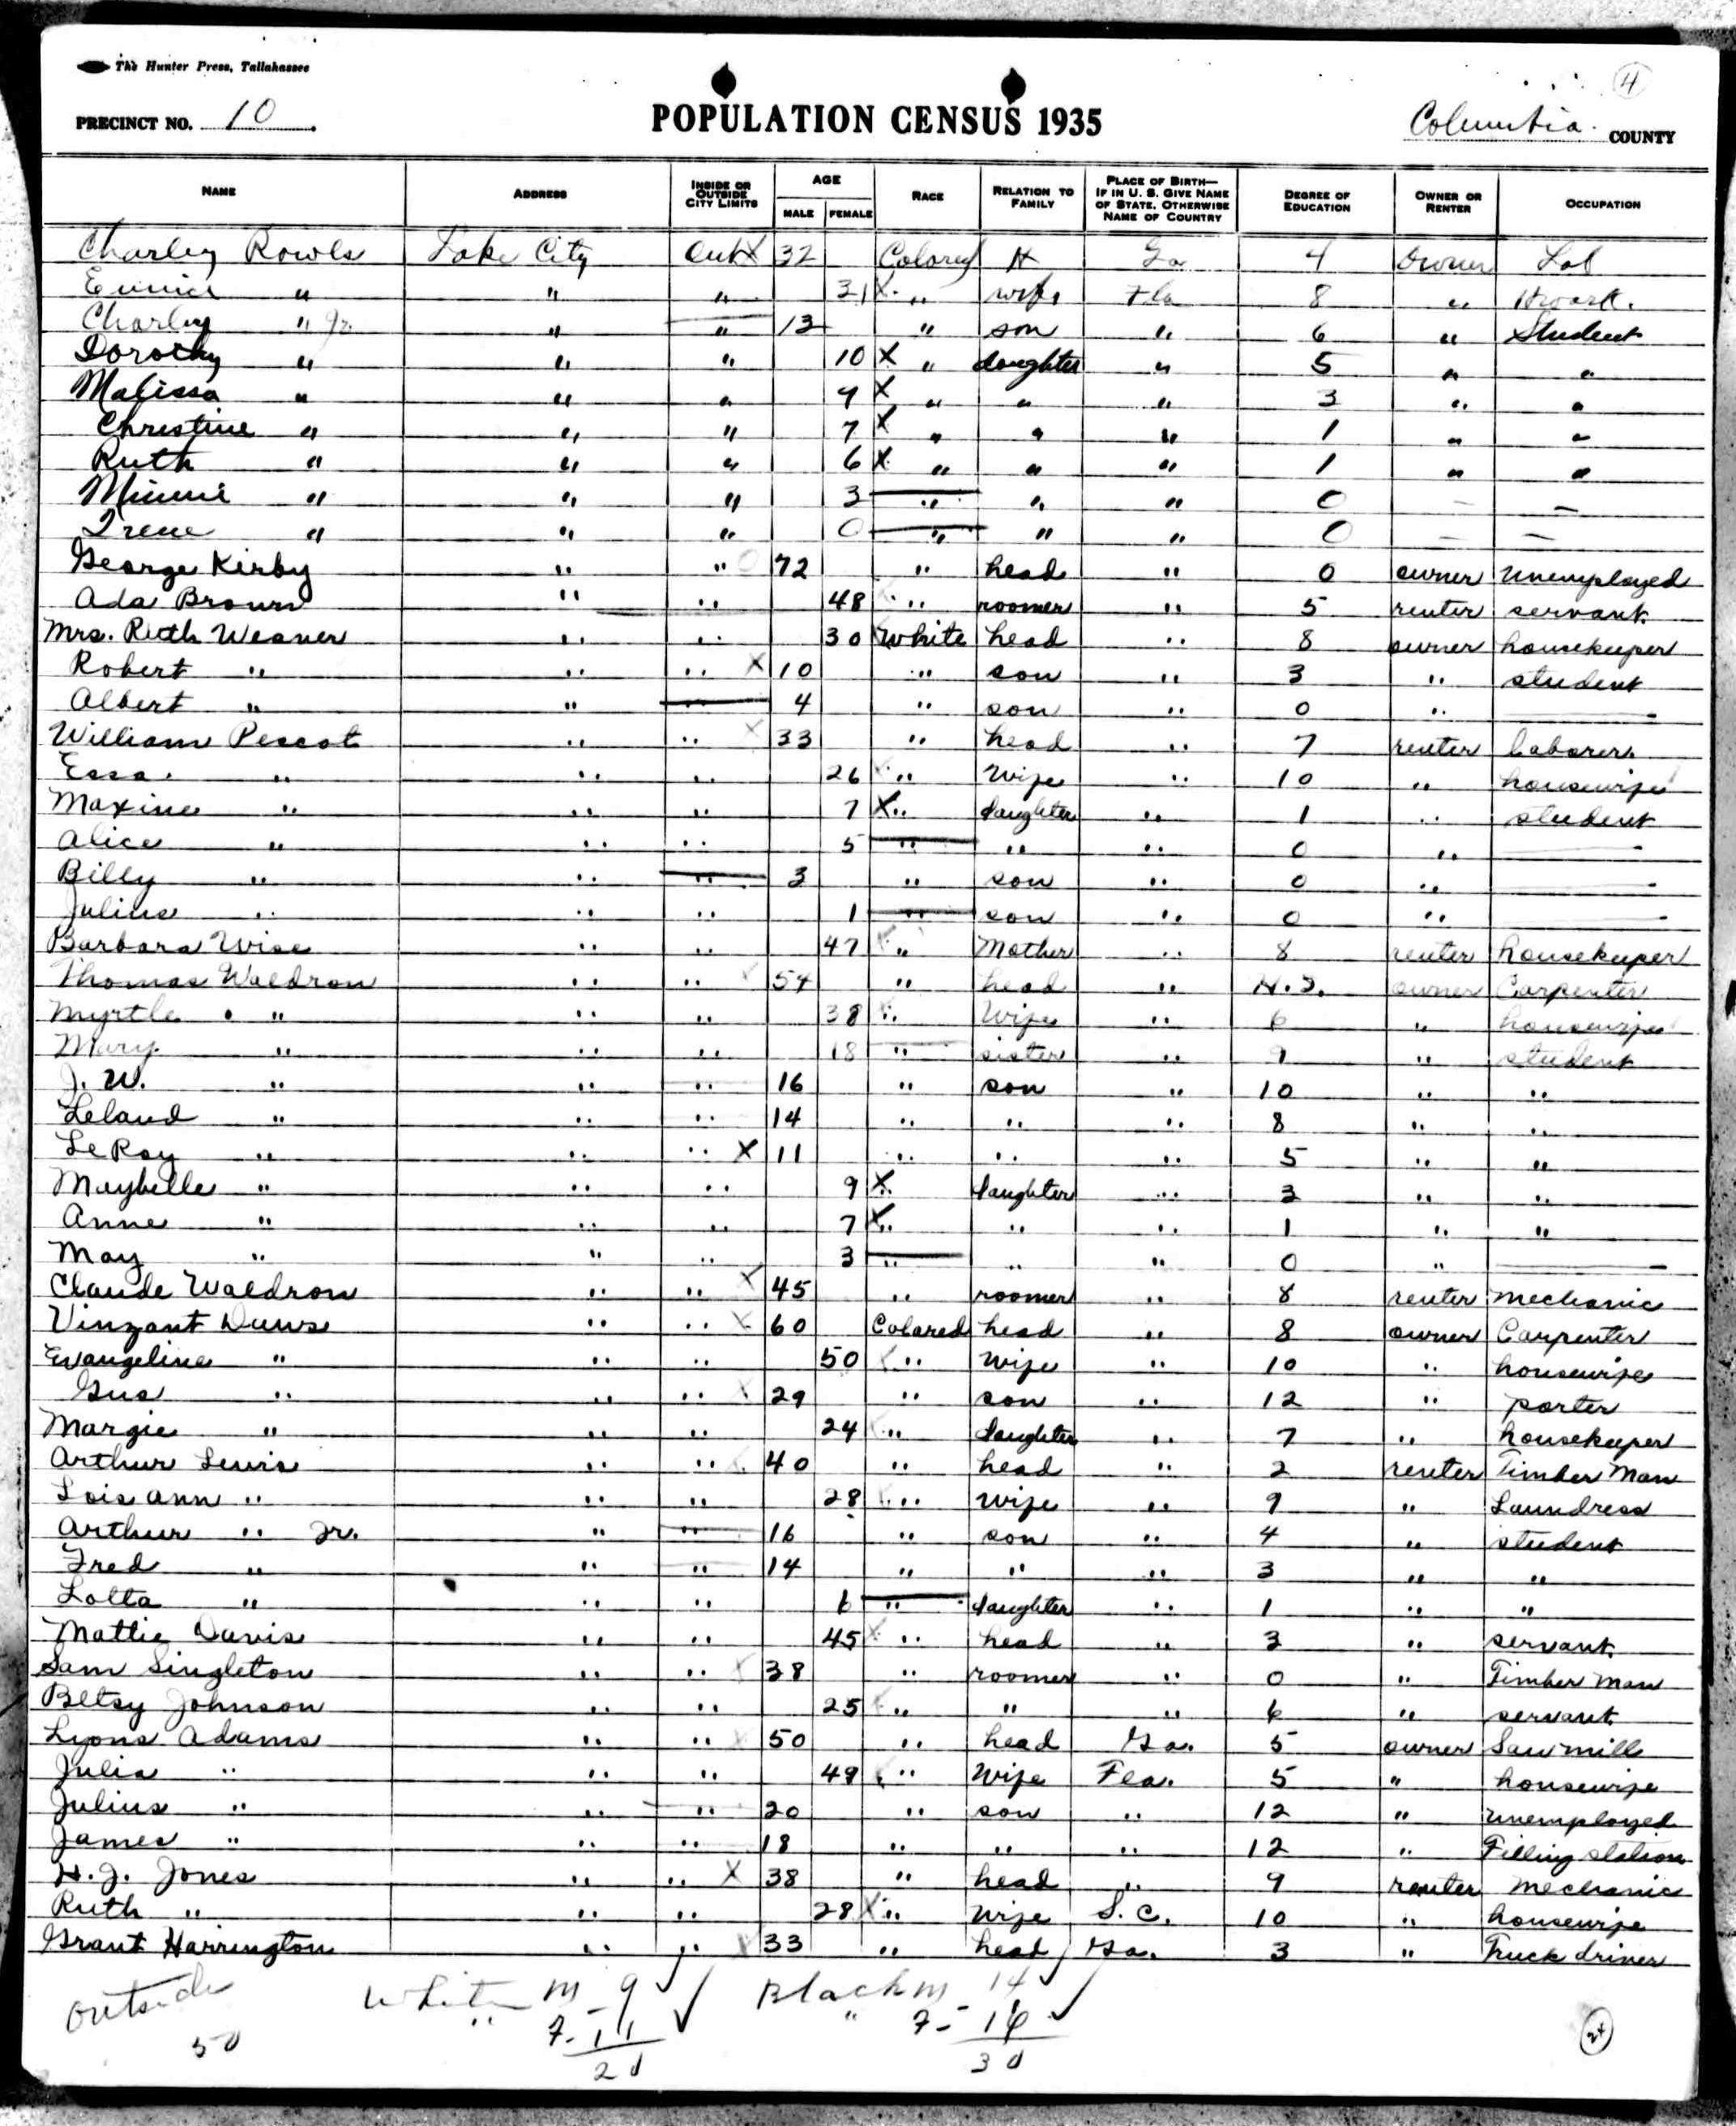 The Hunter Press, Tallahassee
4
PRECINCT NO. 10 POPULATION CENSUS 1935 Columbia COUNTY
NAME ADDRESS INSIDE OR OUTSIDE CITY LIMITS AGE MALE FEMALE RACE RELATION TO FAMILY PLACE OF BIRTH— IF IN U. S. GIVE NAME OF STATE, OTHERWISE NAME OF COUNTRY DEGREE OF EDUCATION OWNER OR RENTER OCCUPATION
Charley Rowls Lake City Out X 32 Colored H Ga 4 Owner Lab
Eunice " " " 31 X " wife Fla 8 " Hwork.
Charley " Jr. " " 13 " son " 6 " Student
Dorothy " " " 10 X " daughter " 5 " "
Malissa " " " 9 X " " " 3 " "
Christine " " " 7 X " " " 1 " "
Ruth " " " 6 X " " " 1 " "
Minnie " " " 3 " " " 0 — —
Irene " " " 0 " " " 0 — —
George Kirby " " 72 " head " 0 owner unemployed
Ada Brown " " 48 " roomer " 5 renter servant.
Mrs. Ruth Weaver " " 30 White head " 8 owner housekeeper
Robert " " " X 10 " son " 3 " student
Albert " " 4 " son " 0 " —
William Pescot " " X 33 " head " 7 renter laborer.
Essa. " " " 26 " Wife " 10 " housewife
Maxine " " " 7 X " daughter " 1 " student
Alice " " " 5 " " " 0 " —
Billy " " " 3 " son " 0 " —
Julius " " " 1 " son " 0 " —
Barbara Wise " " 47 " Mother " 8 renter housekeeper
Thomas Waldron " " X 54 " head " H.S. owner Carpenter
Myrtle " " " 38 " Wife " 6 " housewife
Mary " " " 18 " sister " 9 " student
J. W. " " " 16 " son " 10 " "
Leland " " " 14 " " " 8 " "
LeRoy " " " X 11 " " " 5 " "
Maybelle " " " 9 X " daughter " 3 " "
Anne " " " 7 X " " " 1 " "
May " " " 3 " " " 0 " —
Claude Waldron " " X 45 " roomer " 8 renter mechanic
Vinzant Duws " " X 60 Colored head " 8 owner Carpenter
Evangeline " " " 50 " Wife " 10 " housewife
Gus " " " X 29 " son " 12 " porter
Margie " " " 24 " daughter " 7 " housekeeper
Arthur Lewis " " 40 " head " 2 renter Timber Man
Lois Ann " " " 28 " Wife " 9 " Laundress
Arthur " Jr. " " 16 " son " 4 " student
Fred " " " 14 " " " 3 " "
Lolta " " " 6 " daughter " 1 " "
Mattie Davis " " 45 X " head " 3 " servant.
Sam Singleton " " X 38 " roomer " 0 " Timber Man
Betsy Johnson " " 25 " " " 6 " servant.
Lyons Adams " " X 50 " head Ga. 5 owner Sawmill
Julia " " " 49 " Wife Fla. 5 " housewife
Julius " " " 20 " son " 12 " unemployed
James " " " 18 " " " 12 " Filling station
H. J. Jones " " X 38 " head " 9 renter mechanic
Ruth " " " 28 X " Wife S. C. 10 " housewife
Grant Harrington " " X 33 " head Ga. 3 " Truck driver
outside White M - 9 ✓ Black M 14 ✓
50 " F - 11 ✓ " F - 16 ✓
20 30
24